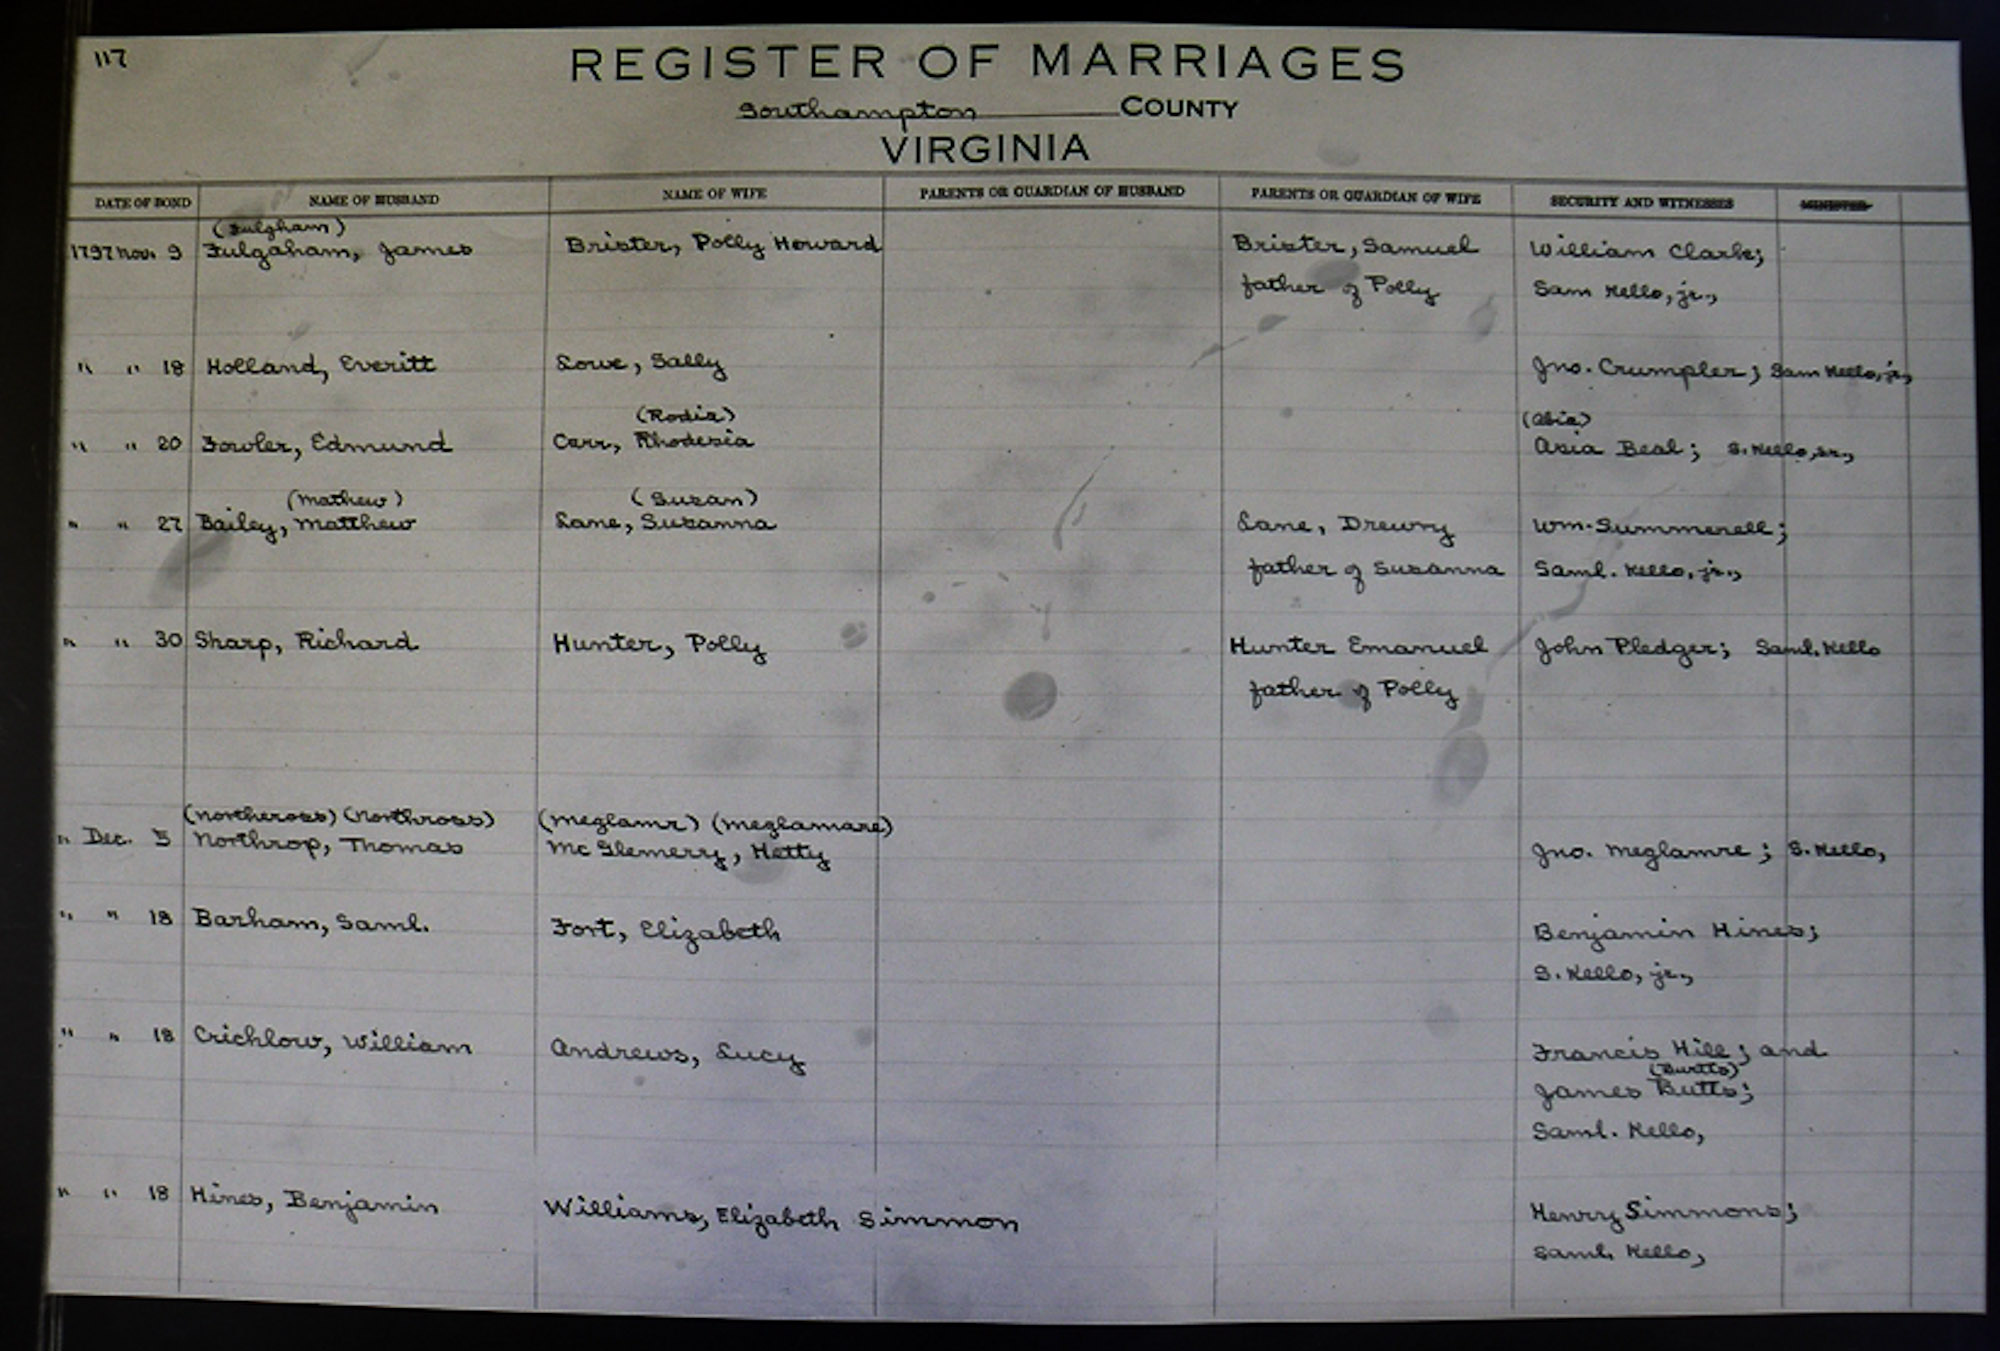 117
REGISTER OF MARRIAGES
Southampton COUNTY
VIRGINIA
DATE OF BOND NAME OF HUSBAND NAME OF WIFE PARENTS OR GUARDIAN OF HUSBAND PARENTS OR GUARDIAN OF WIFE SECURITY AND WITNESSES MINISTER
(Fulgham)
1797 Nov. 9 Fulgaham, James Brister, Polly Howard Brister, Samuel William Clark;
father of Polly Sam Kello, jr.,
" " 18 Holland, Everitt Lowe, Sally Jno. Crumpler; Sam Kello, jr.,
(Rodia) (Abia)
" " 20 Fowler, Edmund Carr, Rhodesia Asia Beal; S. Kello, sr.,
(Mathew) (Suzan)
" " 27 Bailey, Matthew Lane, Suzanna Lane, Drewry Wm. Summerell;
father of Suzanna Saml. Kello, jr.,
" " 30 Sharp, Richard Hunter, Polly Hunter Emanuel John Pledger; Saml. Kello
father of Polly
(Northcross) (Northross) (Meglamr) (Meglamare)
" Dec. 5 Northrop, Thomas McGlemerry, Hetty Jno. Meglamre; S. Kello,
" " 18 Barham, Saml. Fort, Elizabeth Benjamin Hines;
S. Kello, jr.,
" " 18 Crichlow, William Andrews, Lucy Francis Hill; and
(Burtts)
James Butts;
Saml. Kello,
" " 18 Hines, Benjamin Williams, Elizabeth Simmon Henry Simmons;
Saml. Kello,